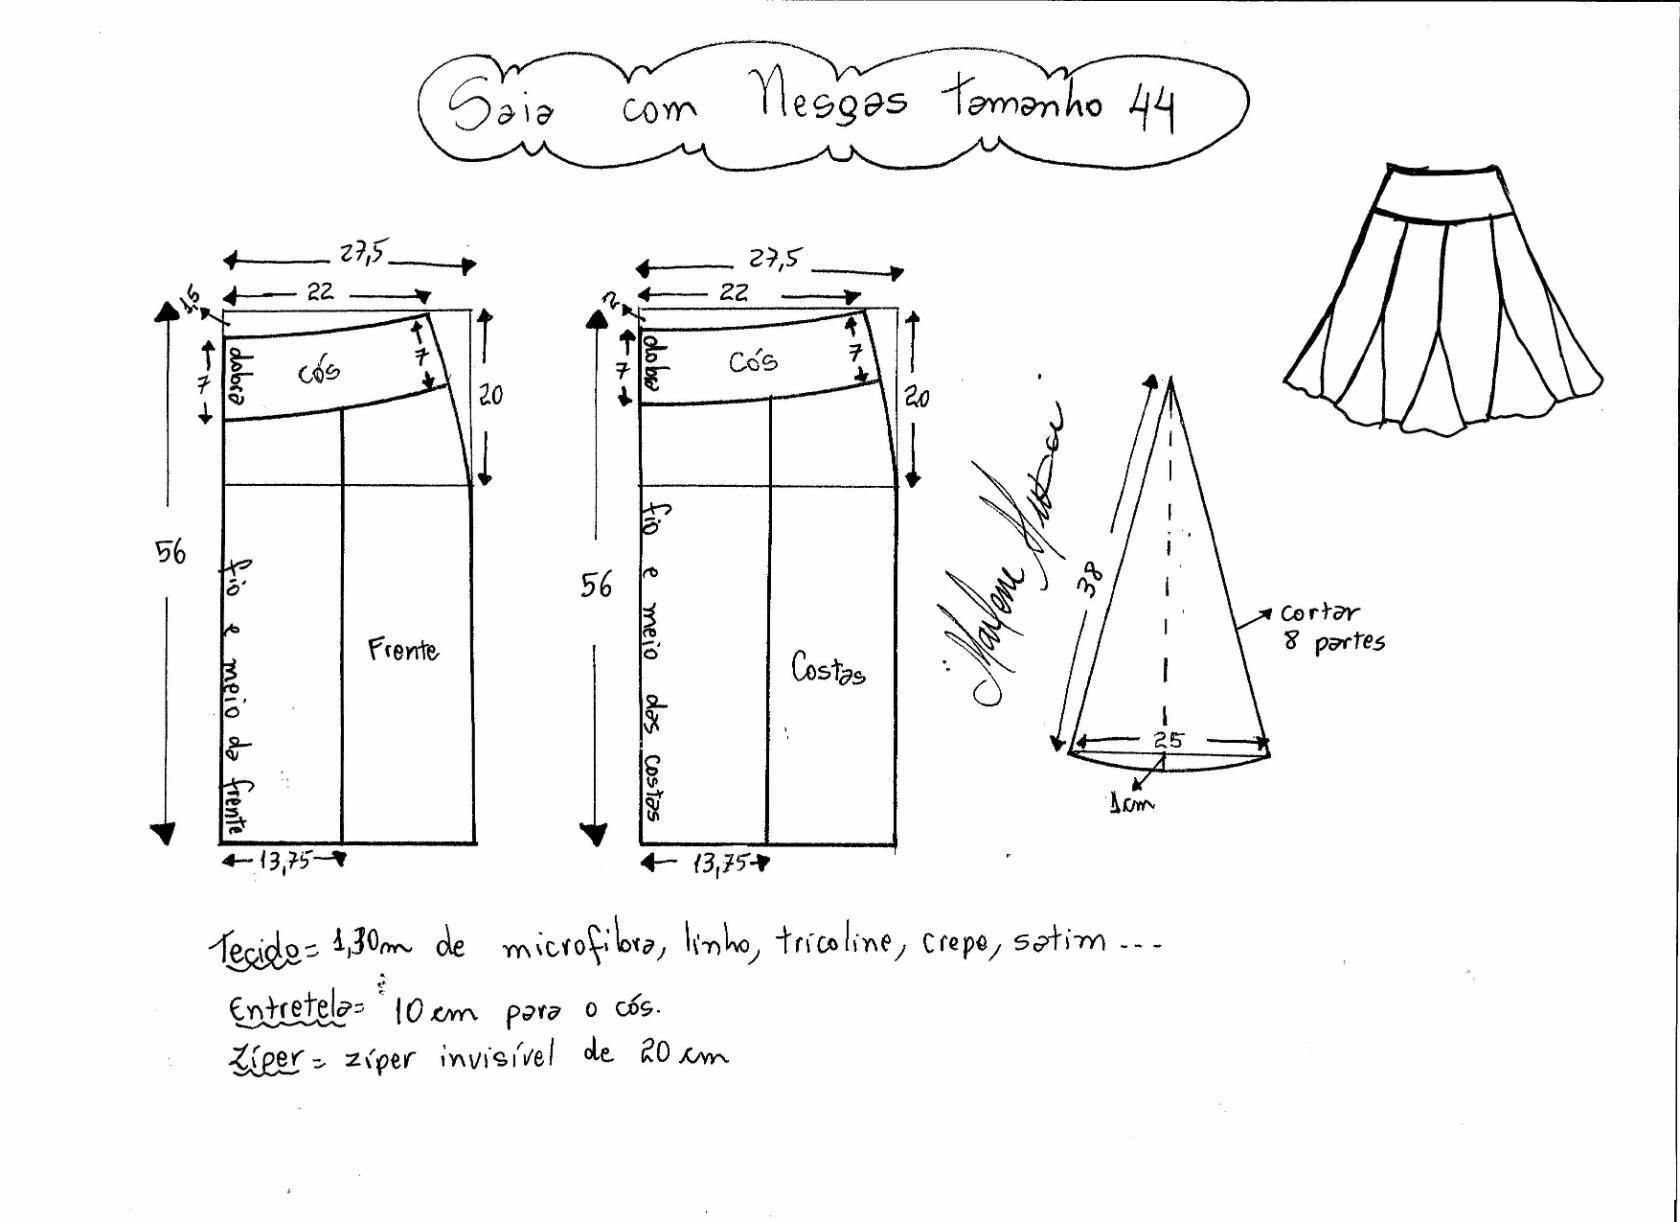 Saia com Nesgas tamanho 44
27,5
22
1,5
7
dobra
cós
7
20
56
fio e meio da frente
Frente
13,75
27,5
22
2
7
dobra
cós
7
20
56
fio e meio das costas
Costas
13,75
Marlene
38
25
1cm
cortar
8 partes
Tecido = 1,30m de microfibra, linho, tricoline, crepe, satim ...
Entretela = 10 cm para o cós.
Zíper = zíper invisível de 20 cm